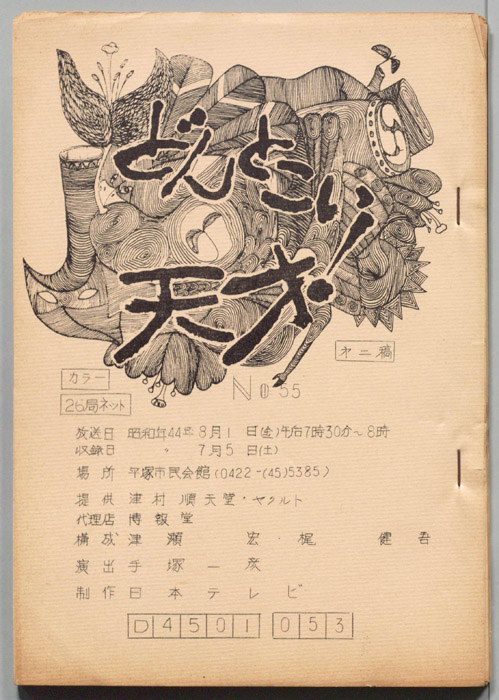 どんとこい!
天才!
オ二稿
カラー
26局ネット
No 55
放送日 昭和年44年8月1日(金)午后7時30分〜8時
収録日 〃 7月5日(土)
場所 平塚市民会館(0422-(45)5385)
提供 津村順天堂・ヤクルト
代理店 博報堂
構成 津瀬 宏・梶 健吾
演出 手塚一彦
制作 日本テレビ
D4501 053